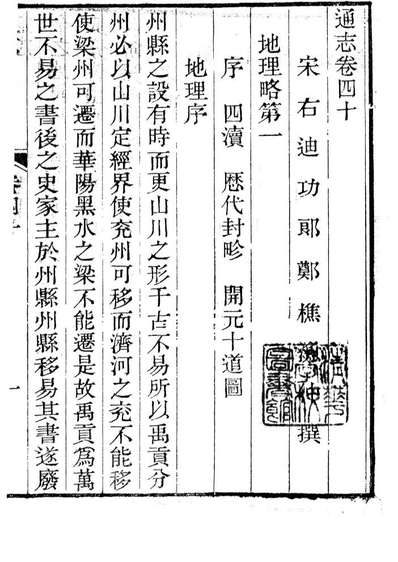 通志卷四十
宋右迪功郎鄭樵 撰
地理略第一
序 四瀆 歷代封畛 開元十道圖
地理序
州縣之設有時而更山川之形千古不易所以禹貢分
州必以山川定經界使兗州可移而濟河之兗不能移
使梁州可遷而華陽黑水之梁不能遷是故禹貢爲萬
世不易之書後之史家主於州縣州縣移易其書遂廢
一